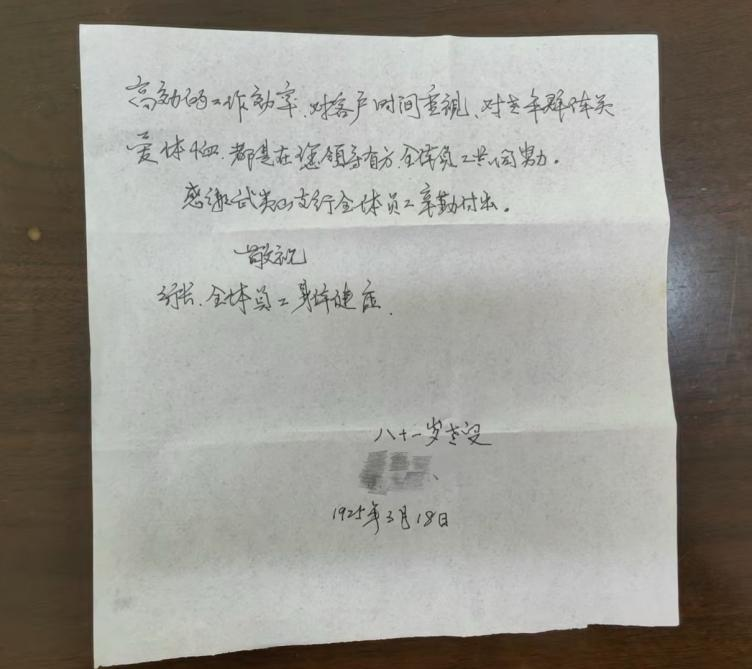 高效的工作效率、对客户时间重视、对老年群体关
爱体恤.都是在您领导有方.全体员工共同努力。
感谢武夷山支行全体员工辛勤付出。
敬祝
行长.全体员工身体健康.
八十一岁老叟
1925年3月18日